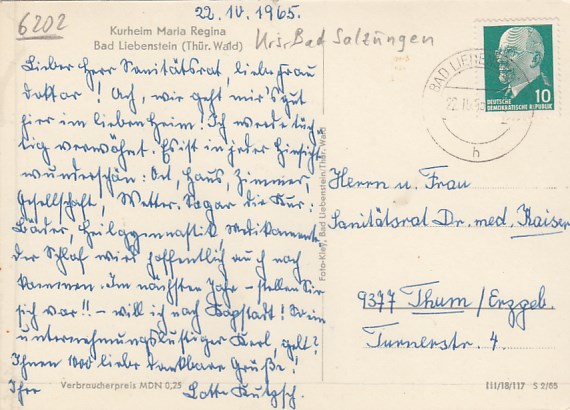 6202
22.IV.1965.
Kurheim Maria Regina
Bad Liebenstein (Thür. Wald)
Krs. Bad Salzungen
Lieber Herr Sanitätsrat, liebe Frau
Doktor! Ach, wie geht mir's gut
hier im lieben Heim! Ich werde tüch-
tig verwöhnt. Es ist in jeder Hinsicht
wunderschön: Ort, Haus, Zimmer,
Gesellschaft, Wetter. Sogar die Kur:
Bäder, Heilgymnastik, Medikamente
der Schlaf wird hoffentlich auch noch
kommen. Im nächsten Jahr – stellen Sie
sich vor!! – will ich nach Kapstadt! So ein
unternehmungslustiger Kerl, gelt?
Ihnen 1000 liebe dankbare Grüße!
Ihre Lotte
Verbraucherpreis MDN 0,25
Foto-Kleß, Bad Liebenstein/Thür. Wald
BAD LIEBE
22. IV. 65
h
10
DEUTSCHE
DEMOKRATISCHE REPUBLIK
Herrn u. Frau
Sanitätsrat Dr. med. Kaiser
9377 Thum / Erzgeb.
Turnerstr. 4.
III/18/117 S 2/65